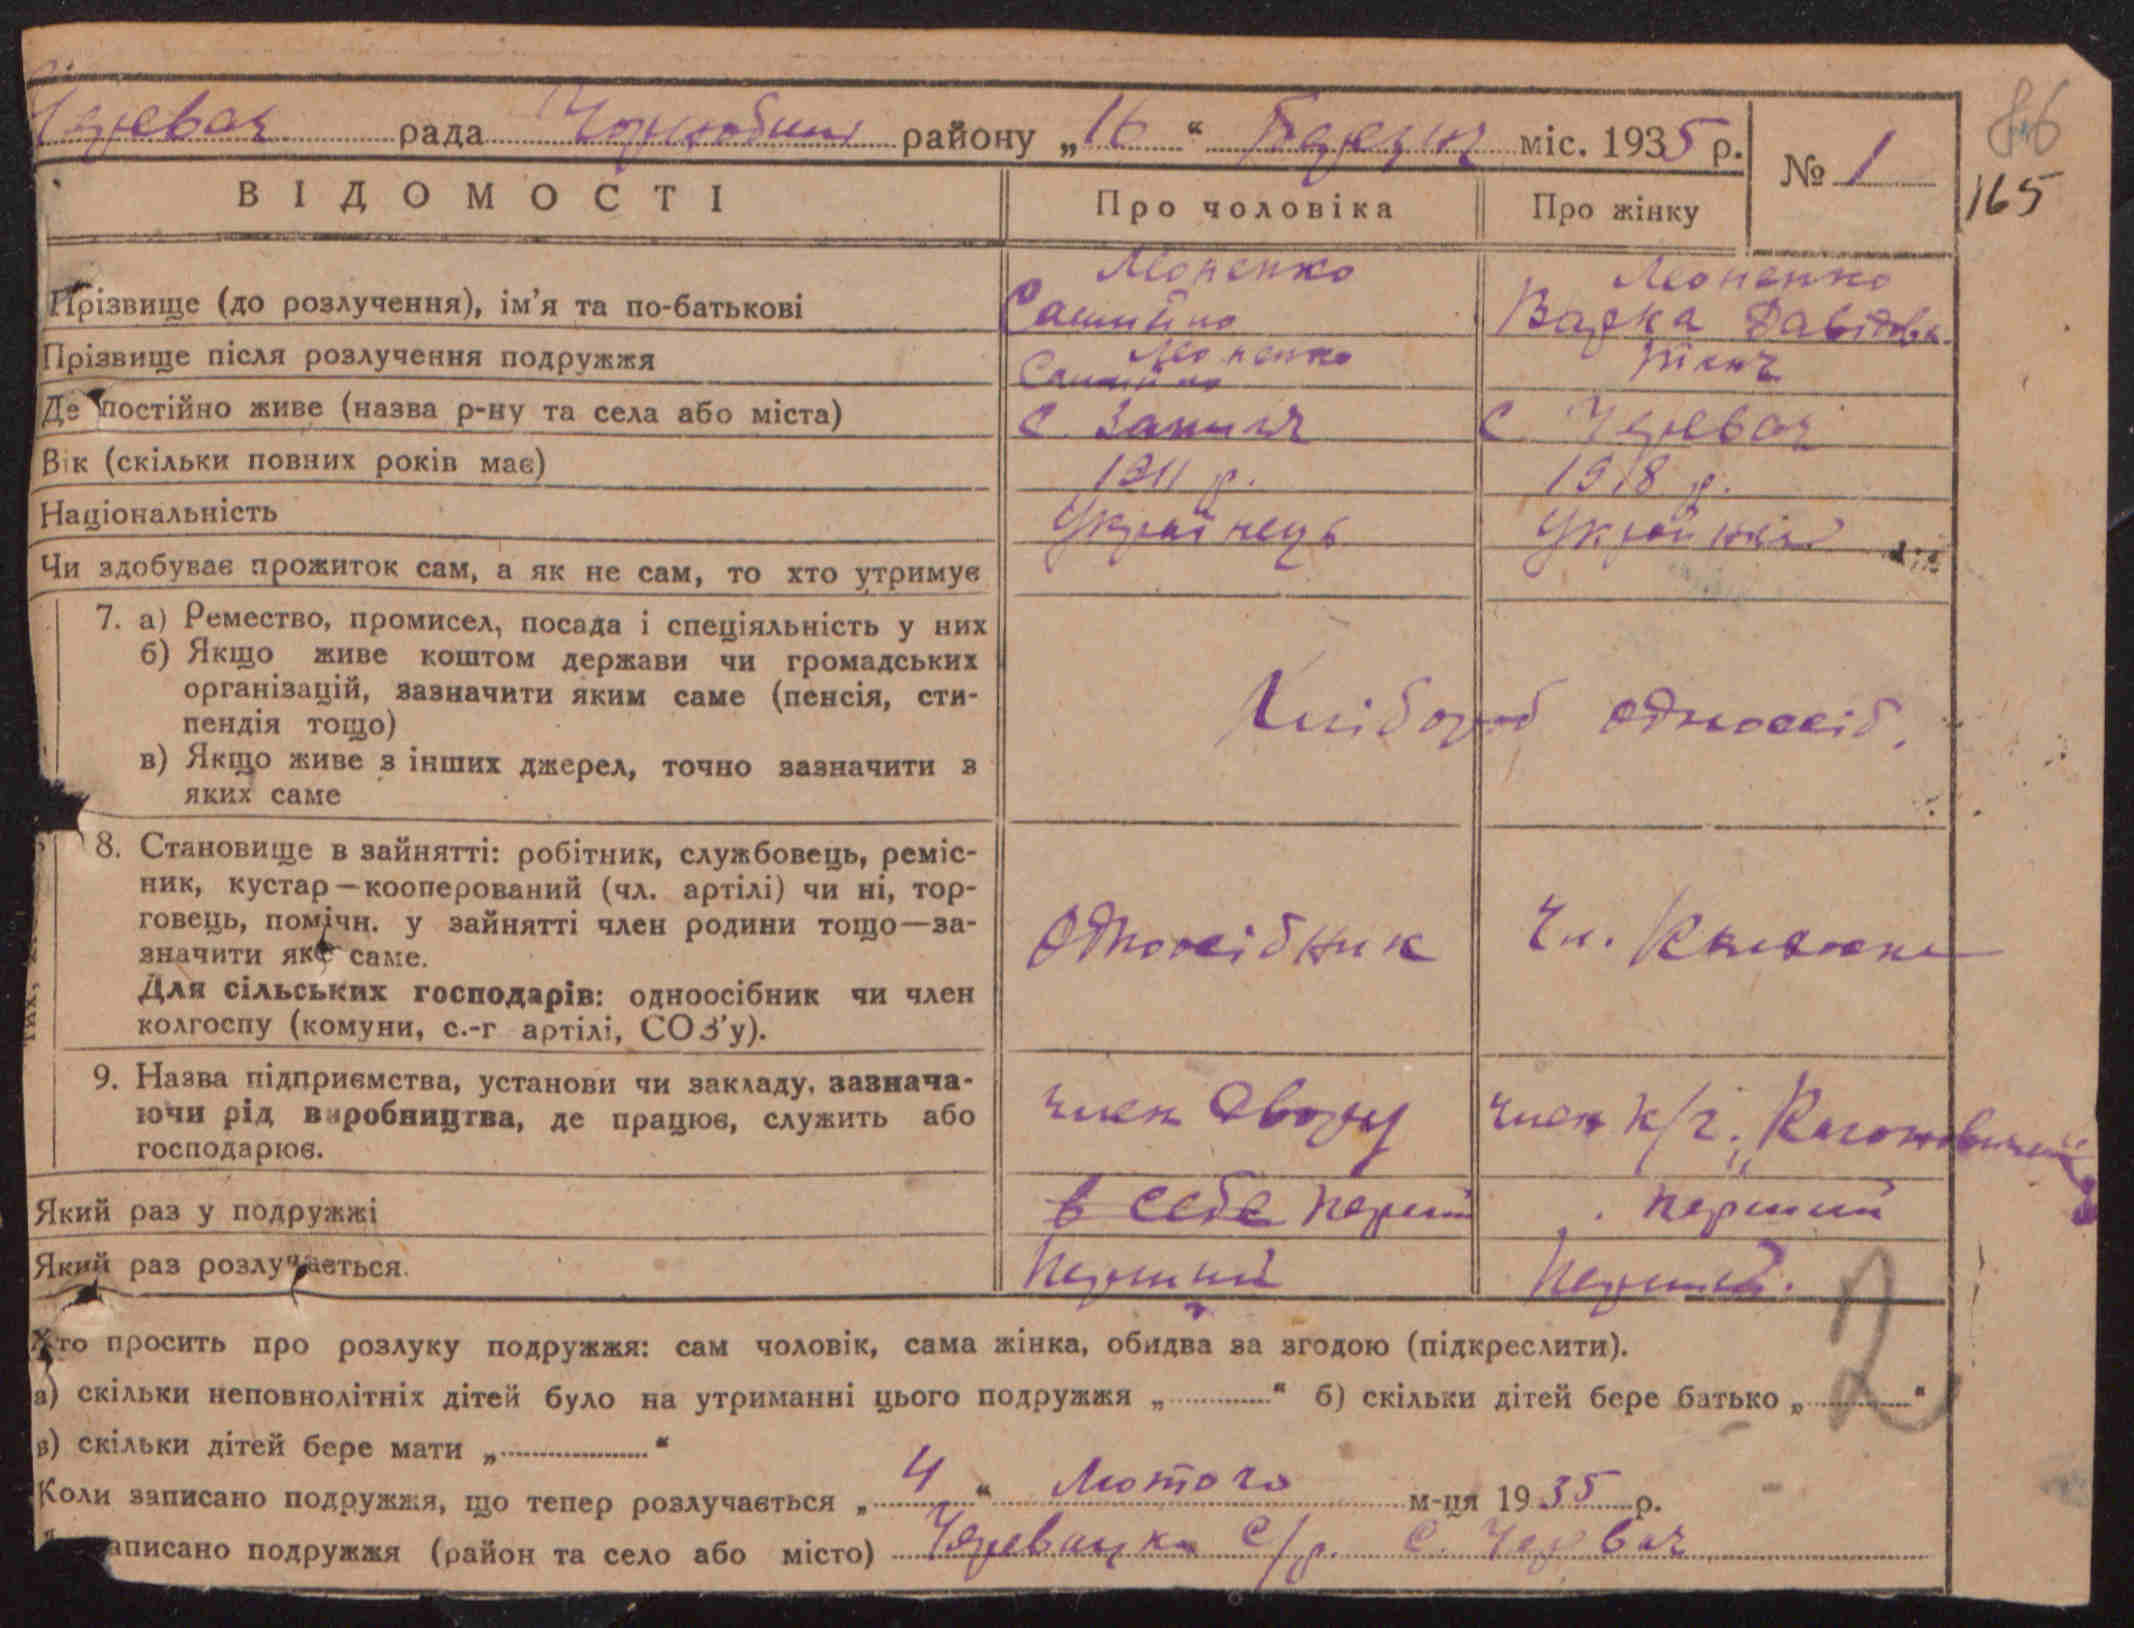 Черевач рада Чорнобиль району „16“ Березня міс. 1935 р.
№ 1
86
165
ВІДОМОСТІ Про чоловіка Про жінку
Леоненко Леоненко
Прізвище (до розлучення), ім’я та по-батькові Варка Давідовн.
Прізвище після розлучення подружжя Леоненко
Де постійно живе (назва р-ну та села або міста) с. с. Черевач
Вік (скільки повних років має) 1911 р. 1918 р.
Національність Українець Українка
Чи здобуває прожиток сам, а як не сам, то хто утримує
7. а) Ремество, промисел, посада і спеціяльність у них
б) Якщо живе коштом держави чи громадських
організацій, зазначити яким саме (пенсія, сти-
пендія тощо)
Хлібороб одноосіб.
в) Якщо живе з інших джерел, точно зазначити з
яких саме
8. Становище в зайнятті: робітник, службовець, реміс-
ник, кустар—кооперований (чл. артілі) чи ні, тор-
говець, помічн. у зайнятті член родини тощо—за-
значити яке саме.
Одноосібник Чл.
Для сільських господарів: одноосібник чи член
колгоспу (комуни, с.-г артілі, СОЗ’у).
9. Назва підприємства, установи чи закладу, зазнача-
ючи рід виробництва, де працює, служить або
господарює.
член двору член к/г. „Кагановича“
Який раз у подружжі в себе перший перший
Який раз розлучається. Перший Перший.
Хто просить про розлуку подружжя: сам чоловік, сама жінка, обидва за згодою (підкреслити).
а) скільки неповнолітніх дітей було на утриманні цього подружжя „ “ б) скільки дітей бере батько „ “
в) скільки дітей бере мати „ “
2
Коли записано подружжя, що тепер розлучається „4“ Лютого м-ця 1935 р.
аписано подружжя (район та село або місто) Черевацка С/р. с. Черевач